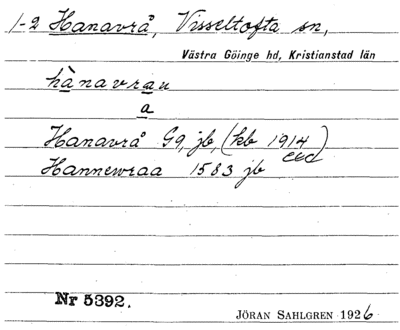 1-2 Hanavrå, Visseltofta sn,
Västra Göinge hd, Kristianstad län
hànavrau
a
Hanavrå G9, jb, (kb 1914
Hannewraa 1583 jb
Nr 5392.
JÖRAN SAHLGREN 1926